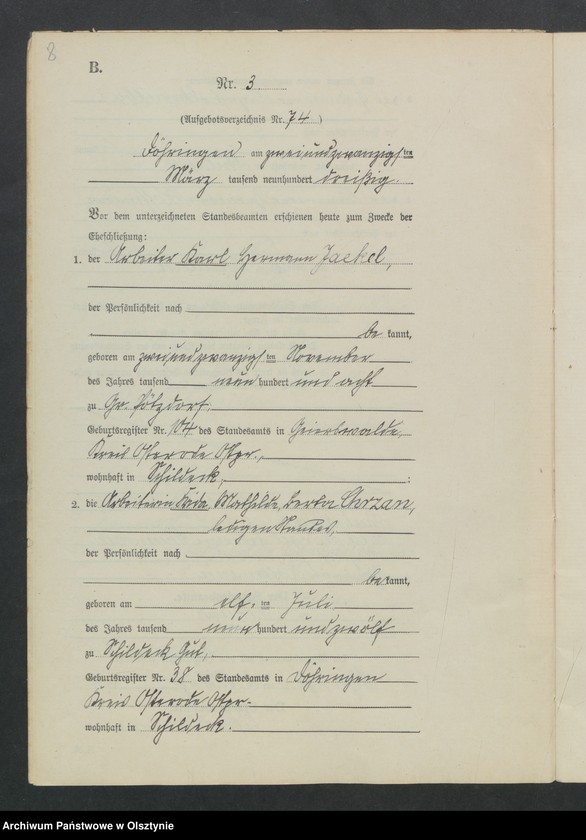 8
B.
Nr. 3
(Aufgebotsverzeichnis Nr. 74)
Döhringen am zweiundzwanzigsten
März tausend neunhundert dreißig.
Vor dem unterzeichneten Standesbeamten erschienen heute zum Zwecke der
Eheschließung:
1. der Arbeiter Karl Hermann Jaekel,
der Persönlichkeit nach
be kannt,
geboren am zweiundzwanzigsten November
des Jahres tausend neun hundert und acht
zu Gr. Pötzdorf.
Geburtsregister Nr. 104 des Standesamts in Geierswalde,
Kreis Osterode Ostpr.,
wohnhaft in Schildeck, ;
2. die Arbeiterin Frida, Mathilde, Berta Chrzan,
der Persönlichkeit nach
be kannt,
geboren am elften Juli
des Jahres tausend neun hundert und zwölf
zu Schildeck Gut,
Geburtsregister Nr. 38 des Standesamts in Döhringen
Kreis Osterode Ostpr.
wohnhaft in Schildeck.
Archiwum Państwowe w Olsztynie